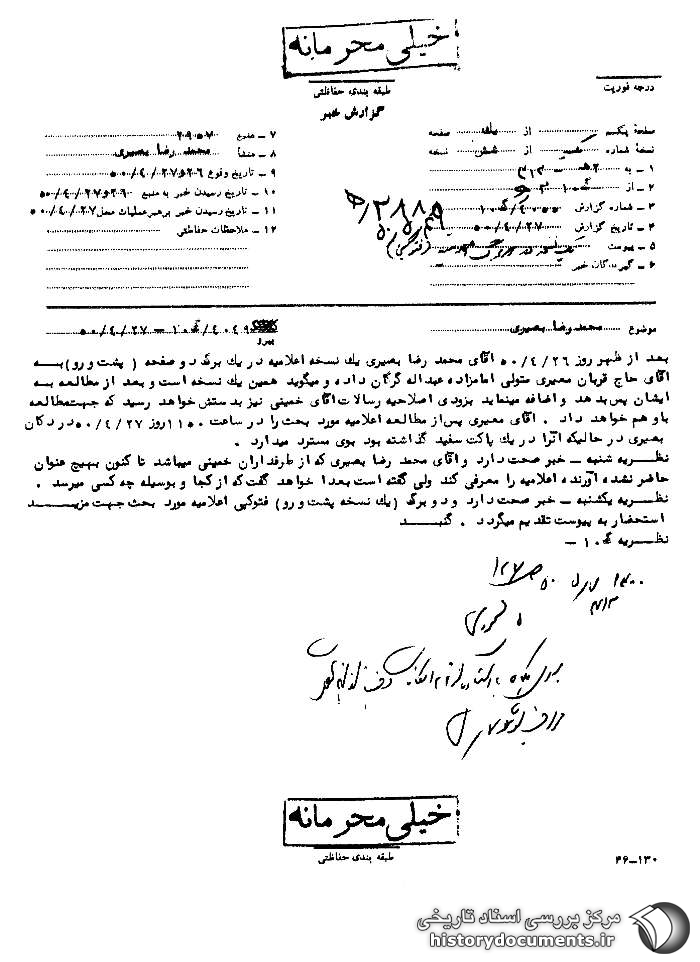 خیلی محرمانه
طبقه بندی حفاظتی
گزارش خبر
درجه فوریت
صفحه یکم از یک صفحه
نسخه شماره از شش نسخه
۱ - به ۳۱۲
۲ - از
۳ - شماره گزارش
۴ - تاریخ گزارش ۵۰/۴/۲۷
۵ - پیوست
۶ - گیرندگان خبر
۷ - منبع ۲۹۵۷
۸ - منشأ محمد رضا بصیری
۹ - تاریخ وقوع ۲۶و۵۰/۴/۲۷
۱۰ - تاریخ رسیدن خبر به منبع ۲۶و۵۰/۴/۲۷
۱۱ - تاریخ رسیدن خبر برهبر عملیات محل ۵۰/۴/۲۷
۱۲ - ملاحظات حفاظتی
موضوع محمد رضا بصیری
پیرو ۵۰/۴/۲۷
بعد از ظهر روز ۵۰/۴/۲۶ آقای محمد رضا بصیری یك نسخه اعلامیه در یك برگ دو صفحه ( پشت و رو) به
آقای حاج قربان معیری متولی امامزاده عبداله گرگان داده و میگوید همین یك نسخه است و بعد از مطالعه به
ایشان پس بدهد و اضافه مینماید بزودی اصلاحیه رسالات آقای خمینی نیز بدستش خواهد رسید که جهت مطالعه
باو هم خواهد داد . آقای معیری پس از مطالعه اعلامیه مورد بحث را در ساعت ۱۱۵۰ روز ۵۰/۴/۲۷ در دکان
بصیری در حالیکه آنرا در یك پاکت سفید گذاشته بود بوی مسترد میدارد .
نظریه شنبه - خبر صحت دارد و آقای محمد رضا بصیری که از طرفداران خمینی میباشد تا کنون بهیچ عنوان
حاضر نشده آورنده اعلامیه را معرفی کند ولی گفته است بعدا خواهد گفت که از کجا و بوسیله چه کسی میرسد .
نظریه یکشنبه - خبر صحت دارد و دو برگ (یك نسخه پشت و رو) فتوکپی اعلامیه مورد بحث جهت مزید
استحضار به پیوست تقدیم میگردد . گنبد
نظریه -
خیلی محرمانه
طبقه بندی حفاظتی
۴۶-۱۳۰
مرکز بررسی اسناد تاریخی
historydocuments.ir